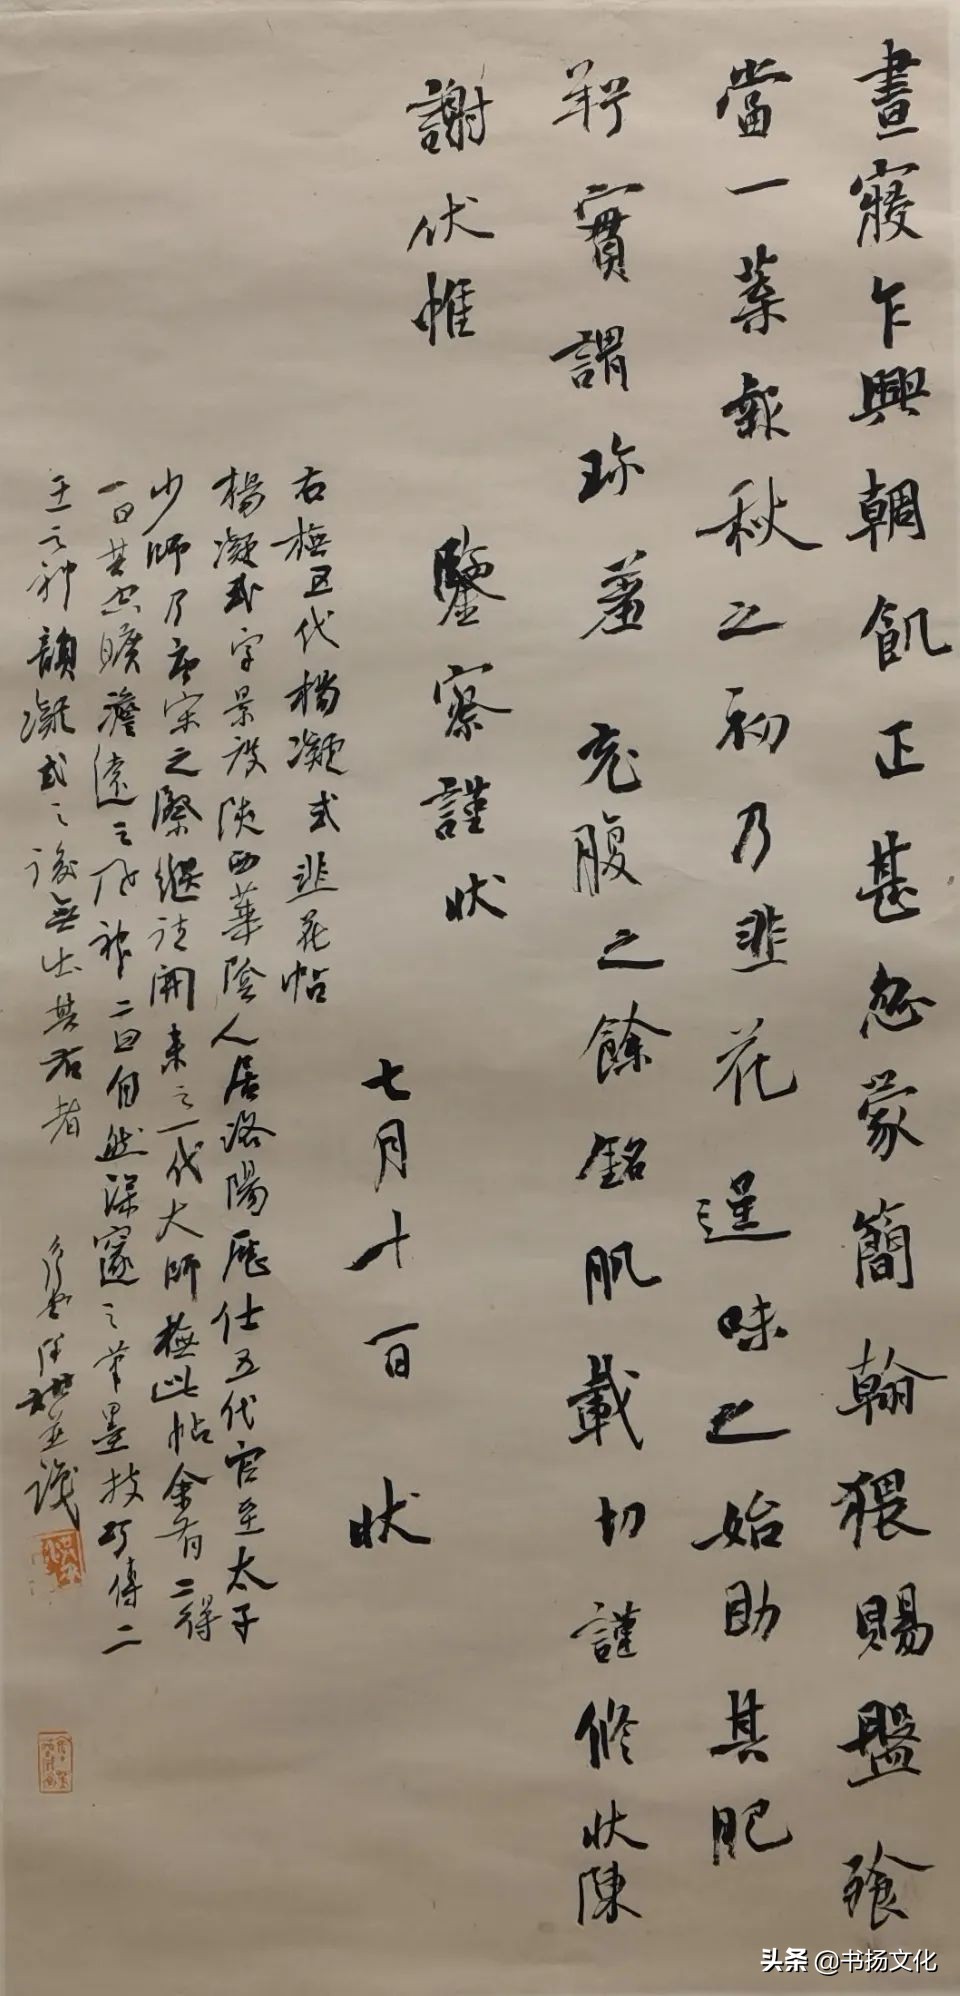 晝寢乍興輖飢正甚忽蒙簡翰猥賜盤飧
當一葉報秋之初乃韭花逞味之始助其肥
羜實謂珍羞充腹之餘銘肌載切謹修狀陳
謝伏惟 鑒察謹狀
七月十一日 狀
右橅五代楊凝式韭花帖
楊凝式字景度陝西華陰人居洛陽歷仕五代官至太子
少師乃唐宋之際繼往開來之一代大師橅此帖余有二得
一曰其空曠澹遠之風神二曰自然深邃之筆墨技巧傳二
王之神韻凝式之後無出其右者
並識
头条 @书扬文化